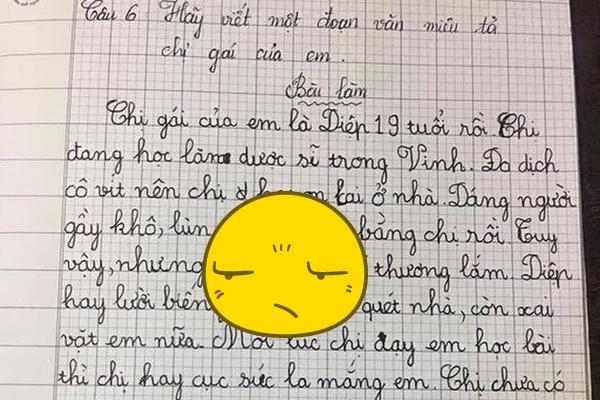 Câu 6 Hãy viết một đoạn văn miêu tả
chị gái của em.
Bài làm
Chị gái của em là Diệp 19 tuổi rồi. Chị
đang học làm dược sĩ trong Vinh. Do dịch
cô vít nên chị ở nhà. Dáng người
gầy khô, lùn bằng chị rồi Tuy
vậy, nhưng thương lắm. Diệp
hay lười biếng quét nhà, còn xai
vặt em nữa. Mỗi lúc chị dạy em học bài
thì chị hay cục súc la mắng em. Chị chưa có